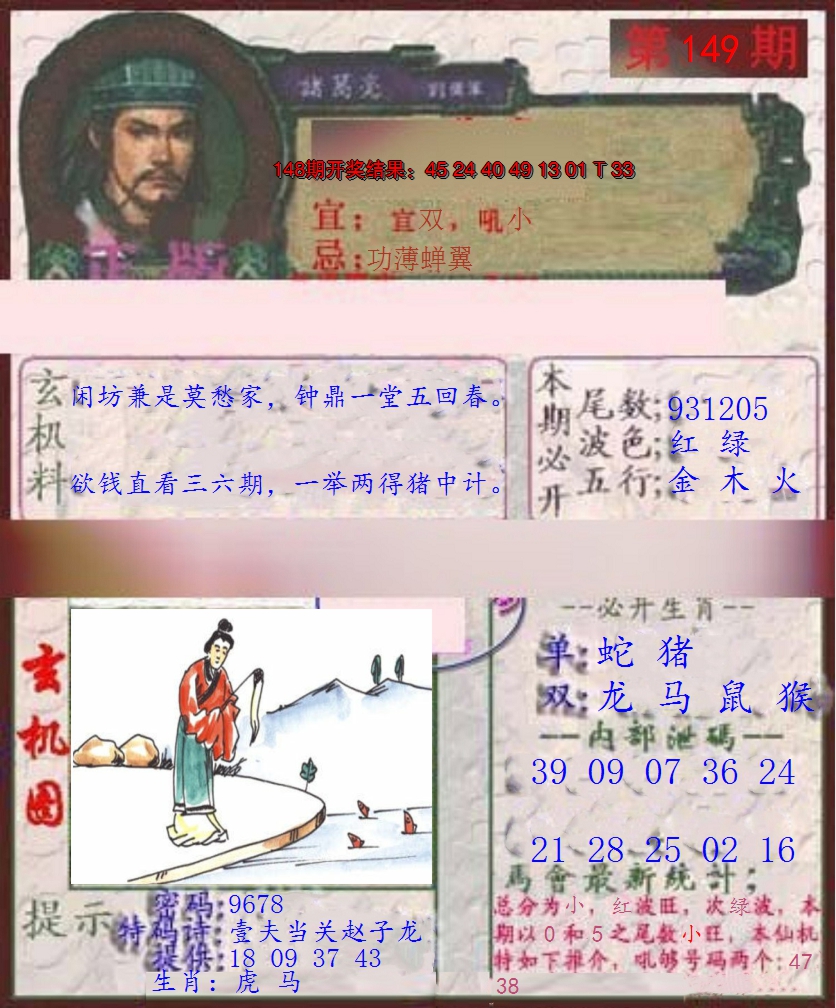 第 149 期
諸葛亮
148期开奖结果：45 24 40 49 13 01 T 33
宜；宜双，吼小
忌；功薄蝉翼
正版
玄机料
闲坊兼是莫愁家，钟鼎一堂五回春。
欲钱直看三六期，一举两得猪中计。
本期必开
尾数;931205
波色;红 绿
五行;金 木 火
--必开生肖--
单:蛇 猪
双:龙 马 鼠 猴
--内部泄碼--
39 09 07 36 24
21 28 25 02 16
玄机图
馬會最新統計;
总分为小，红波旺，次绿波，本
期以0和5之尾数小旺，本仙机
特如下推介，吼够号码两个:47
38
提示
密码:9678
特码诗:壹夫当关赵子龙
提供:18 09 37 43
生肖: 虎 马